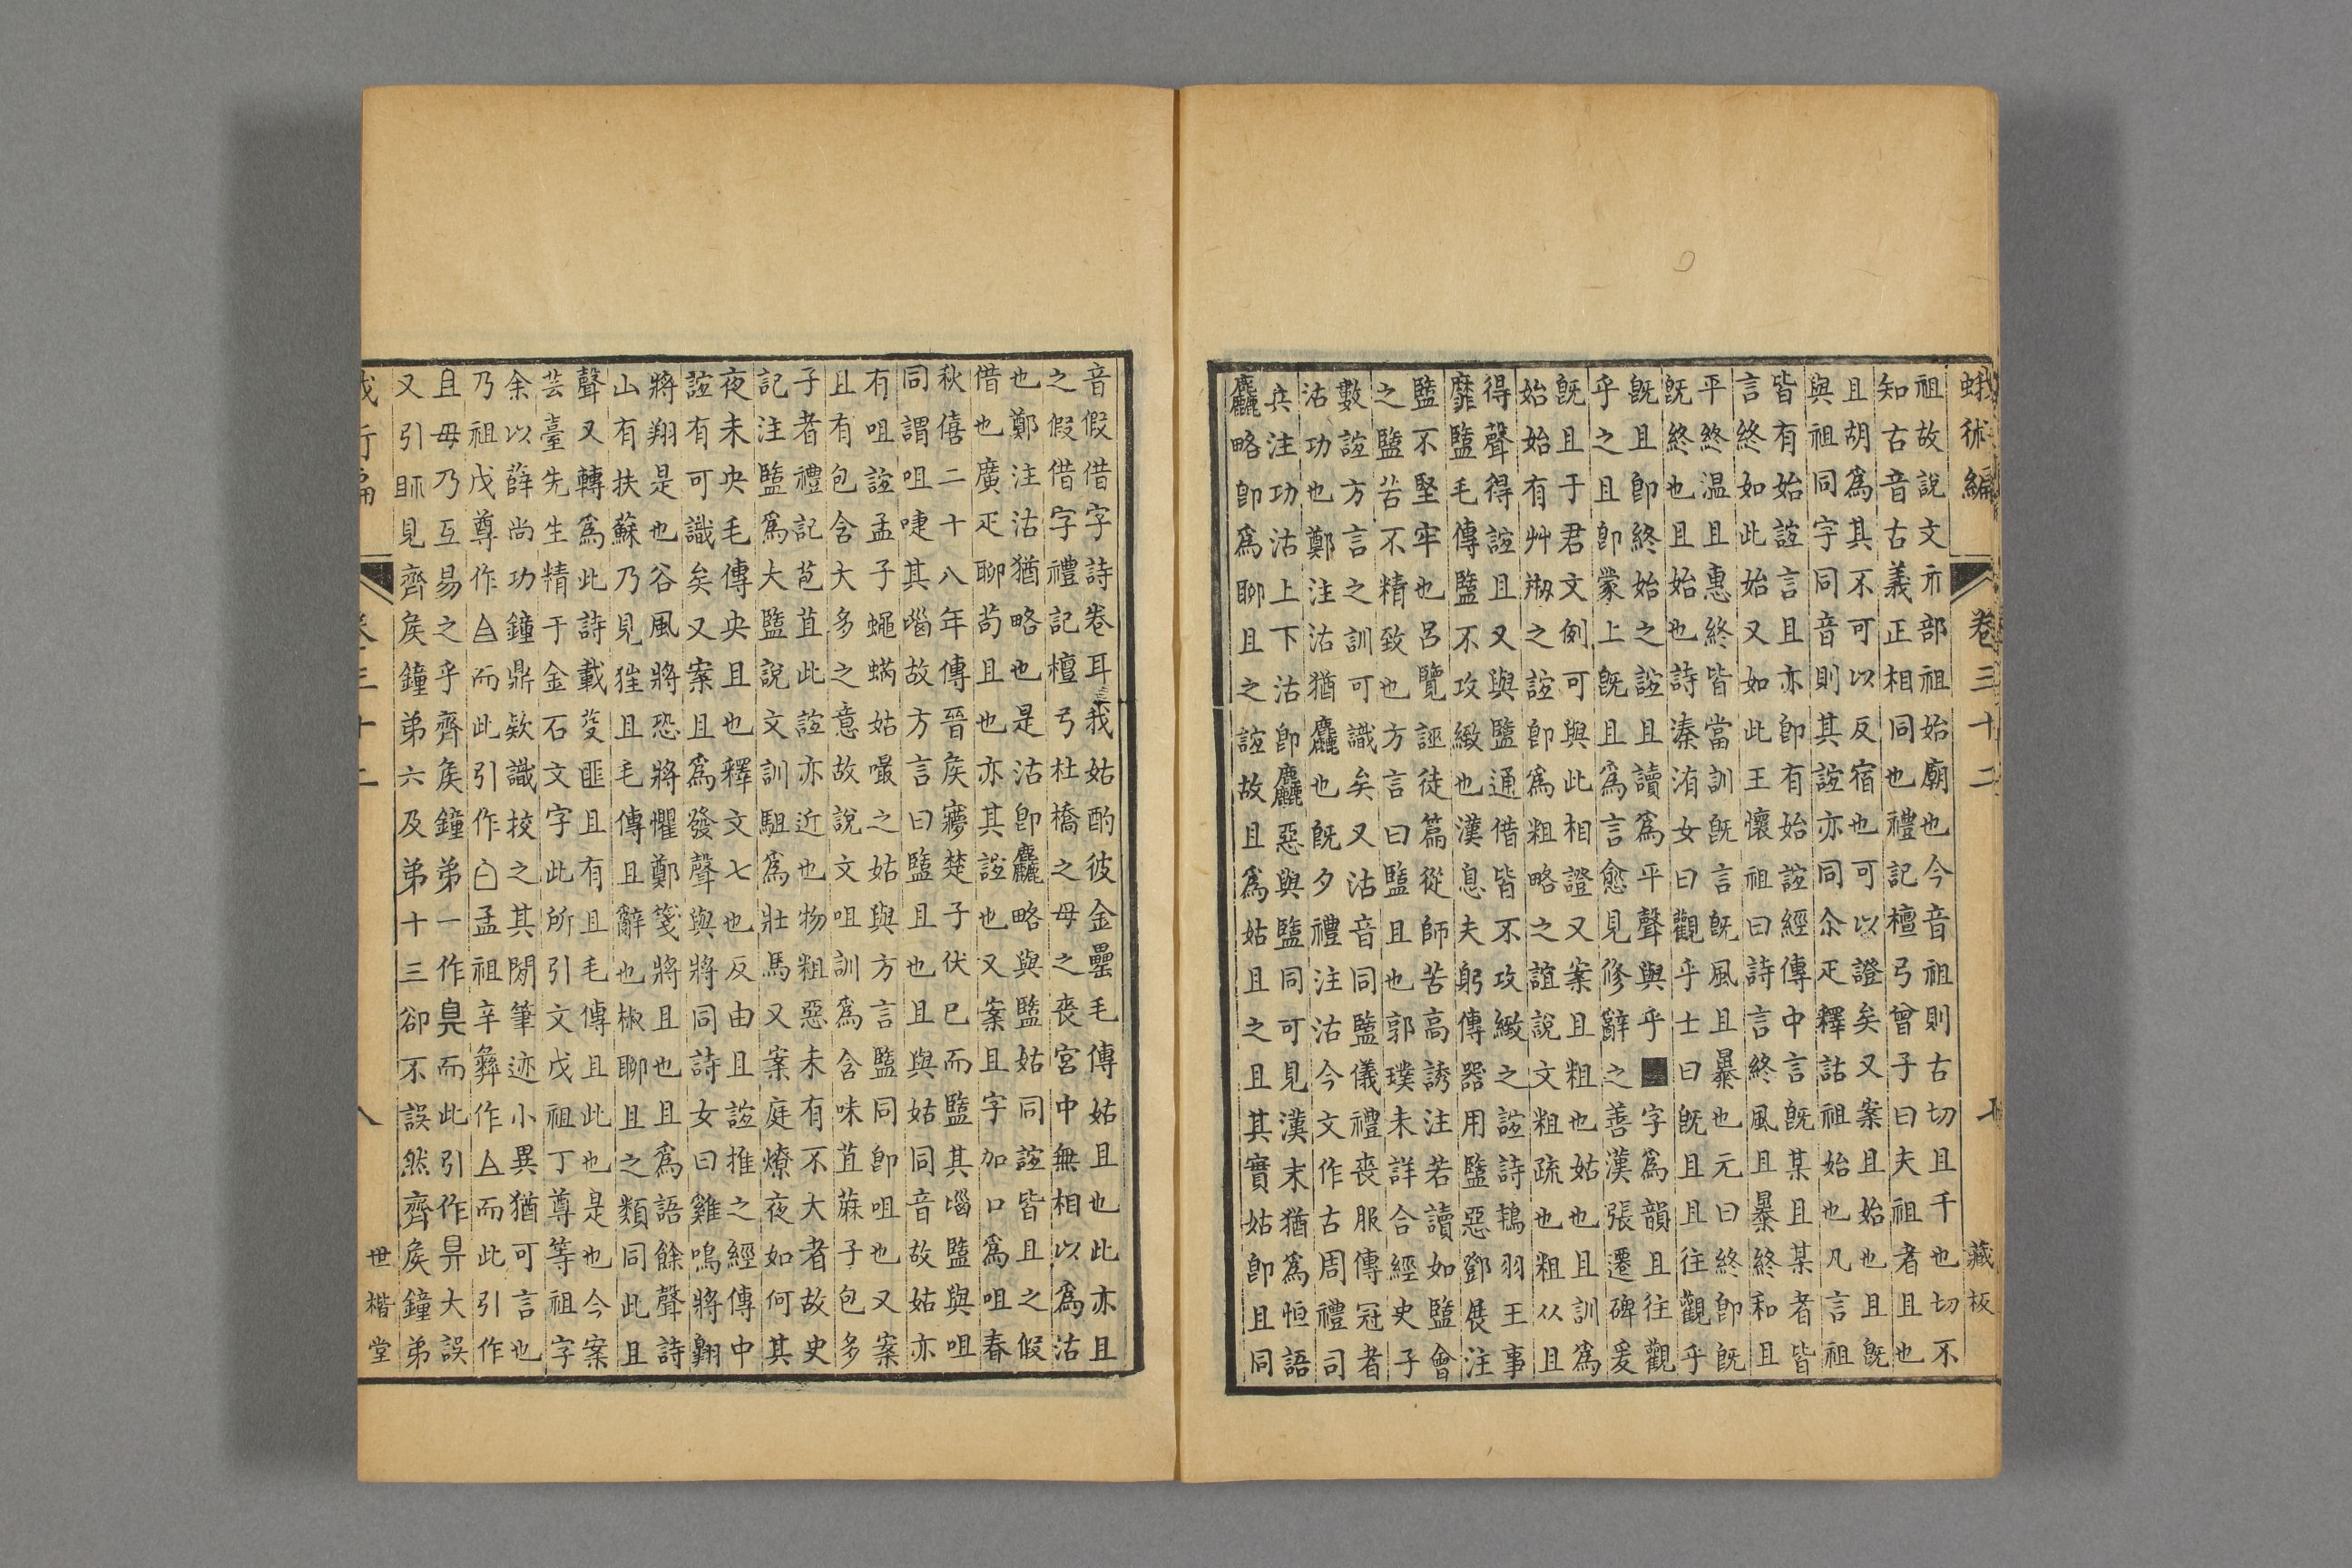 蛾術編　卷三十二　藏板
祖故說文示部祖始廟也今音祖則古切且千也切不
知古音古義正相同也禮記檀弓曾子曰夫祖者且也
且胡爲其不可以反宿也可以證矣又案且始也且旣
與祖同字同音則其誼亦同尒疋釋詁祖始也凡言祖
皆有始誼言且亦卽有始誼經傳中言旣某且某者皆
言終如此始又如此王懷祖曰詩言終風且暴終和且
平終温且惠終皆當訓旣言旣風且暴也元曰終卽旣
旣終也且始也詩溱洧女曰觀乎士曰旣且且往觀乎
旣且卽終始之誼且讀爲平聲與乎■字爲韻且往觀
乎之且卽蒙上旣且爲言愈見修辭之善漢張遷碑爰
旣且于君文例可與此相證又案且粗也姑也且訓爲
始始有艸刱之誼卽爲粗略之誼說文粗疏也粗从且
得聲得誼且又與盬通借皆不攻緻之誼詩鴇羽王事
靡盬毛傳盬不攻緻也漢息夫躬傳器用盬惡鄧展注
盬不堅牢也呂覽誣徒篇從師苦高誘注若讀如盬會
之盬苦不精致也方言曰盬且也郭璞未詳合經史子
數誼方言之訓可識矣又沽音同盬儀禮喪服傳冠者
沽功也鄭注沽猶麤也旣夕禮注沽今文作古周禮司
兵注功沽上下沽卽麤惡與盬同可見漢末猶爲恒語
麤略卽爲聊且之誼故且爲姑且之且其實姑卽且同
音假借字詩卷耳我姑酌彼金罍毛傳姑且也此亦且
之假借字禮記檀弓杜橋之母之喪宮中無相以爲沽
也鄭注沽猶略也是沽卽麤略與盬姑同誼皆且之假
借也廣疋聊苟且也亦其誼也又案且字加口爲咀春
秋僖二十八年傳晉矦夢楚子伏已而盬其𡿺盬與咀
同謂咀唼其𡿺故方言曰盬且也且與姑同音故姑亦
有咀誼孟子蠅蚋姑嘬之姑與方言盬同卽咀也又案
且有包含大多之意故說文咀訓爲含味苴蔴子包多
子者禮記苞苴此誼亦近也物粗惡未有不大者故史
記注盬爲大盬說文訓駔爲壯馬又案庭燎夜如何其
夜未央毛傳央且也釋文七也反由且誼推之經傳中
誼有可識矣又案且爲發聲與將同詩女曰雞鳴將翱
將翔是也谷風將恐將懼鄭箋將且也且爲語餘聲詩
山有扶蘇乃見狂且毛傳且辭也椒聊且之類同此且
聲又轉爲此詩載芟匪且有且毛傳且此也是也今案
芸臺先生精于金石文字此所引文戊祖丁尊等祖字
余以薛尚功鐘鼎欵識挍之其閒筆迹小異猶可言也
乃祖戊尊作𠀇而此引作白孟祖辛彝作𠀇而此引作
且毋乃互易之乎齊矦鐘弟一作𥃩而此引作𢍏大誤
又引㫑見齊矦鐘弟六及弟十三卻不誤然齊矦鐘弟
卷三十二　八　世楷堂